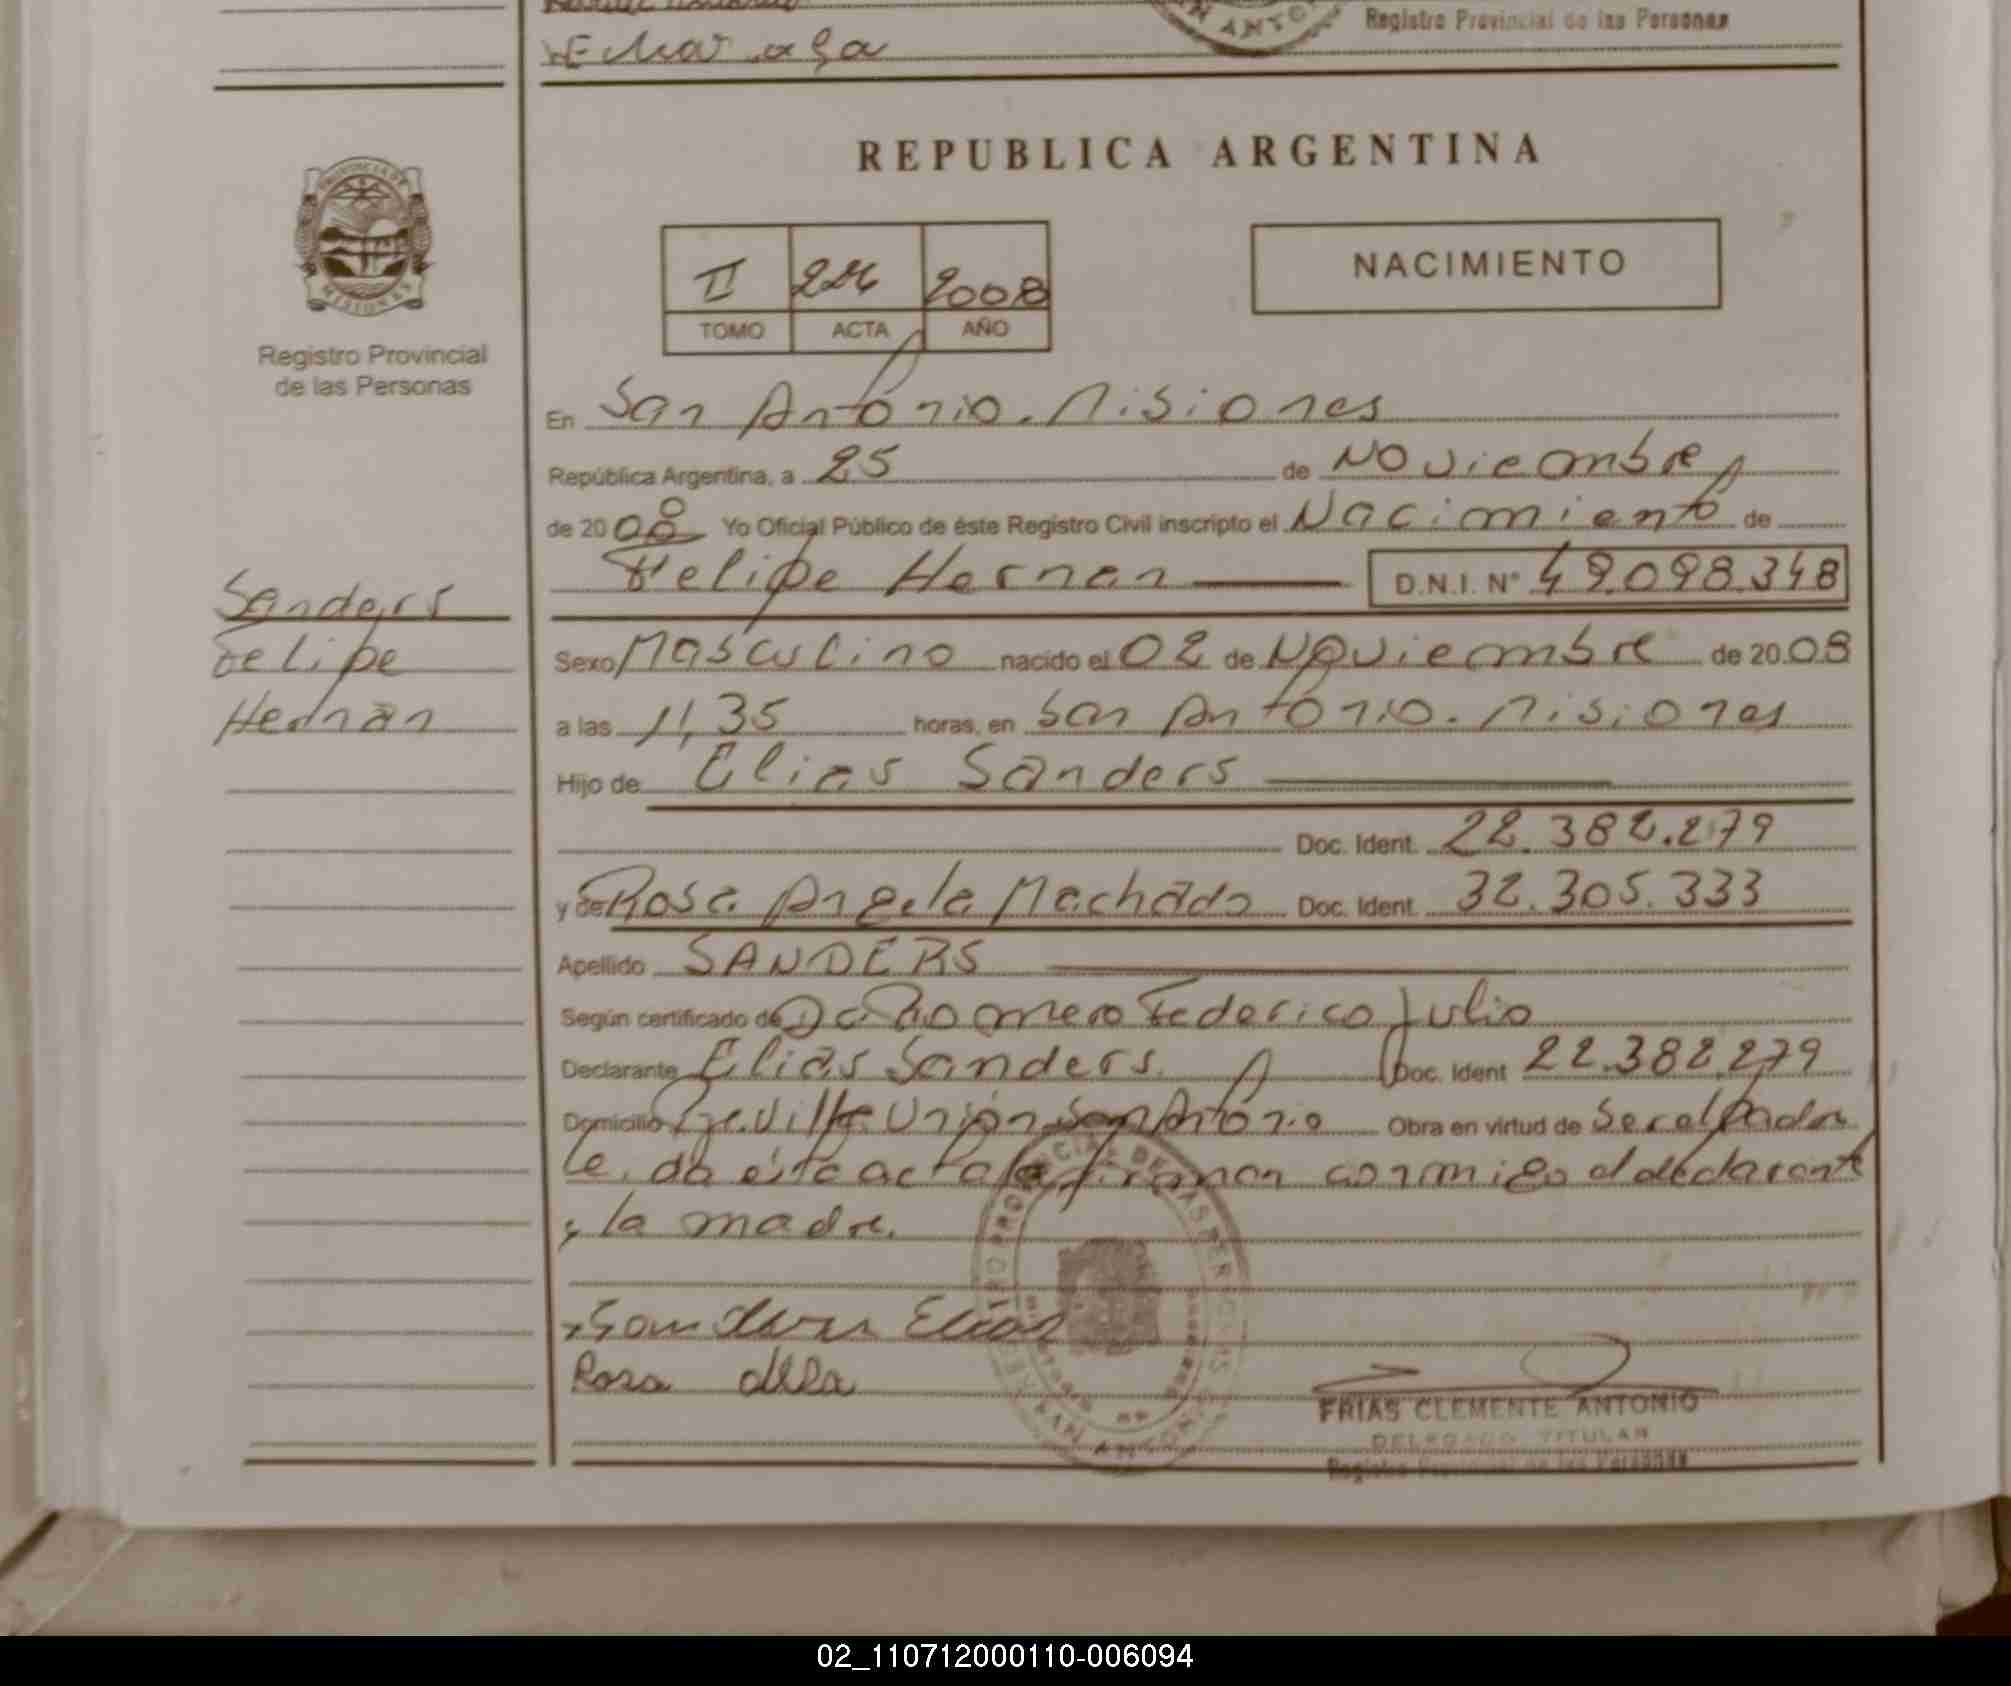 Registro Provincial de las Personas
REPUBLICA ARGENTINA
NACIMIENTO
II 2008
TOMO ACTA AÑO
PROVINCIA DE
MISIONES
Registro Provincial
de las Personas
En San Antonio. Misiones
República Argentina, a 25 de Noviembre
de 2008 Yo Oficial Público de éste Registro Civil inscripto el Nacimiento de
Felipe Hernan D.N.I. N° 49.098.348
Sanders
Felipe
Hernan
Sexo Masculino nacido el 02 de Noviembre de 2008
a las 11,35 horas, en San Antonio. Misiones
Hijo de Elias Sanders
Doc. Ident. 22.382.279
y de Rosa Angela Machado Doc. Ident. 32.305.333
Apellido SANDERS
Según certificado de Dr Romero Federico Julio
Declarante Elias Sanders. Doc. Ident 22.382.279
Domicilio Union San Antonio Obra en virtud de
le. da ésta acta la firman conmigo el declarante
y la madre.
Sanders Elias
Rosa
FRIAS CLEMENTE ANTONIO
DELEGADO TITULAR
Registro Provincial de las Personas
02_110712000110-006094